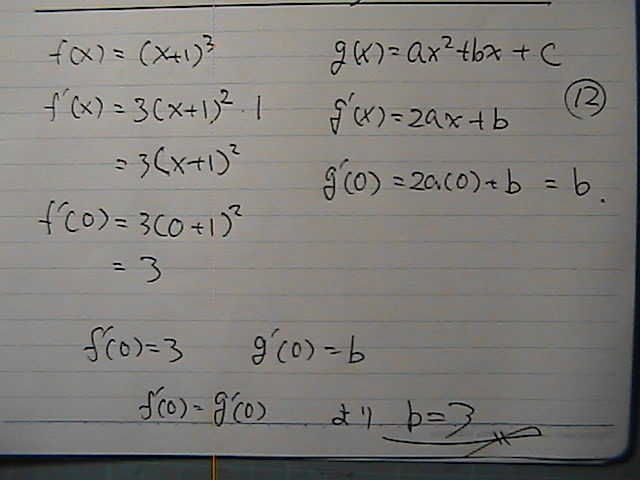 f(x) = (x+1)³
f'(x) = 3(x+1)² · 1
= 3(x+1)²
f'(0) = 3(0+1)²
= 3
g(x) = ax² + bx + c
⑫
g'(x) = 2ax + b
g'(0) = 2a(0) + b = b.
f'(0) = 3 g'(0) = b
f'(0) = g'(0) より b = 3